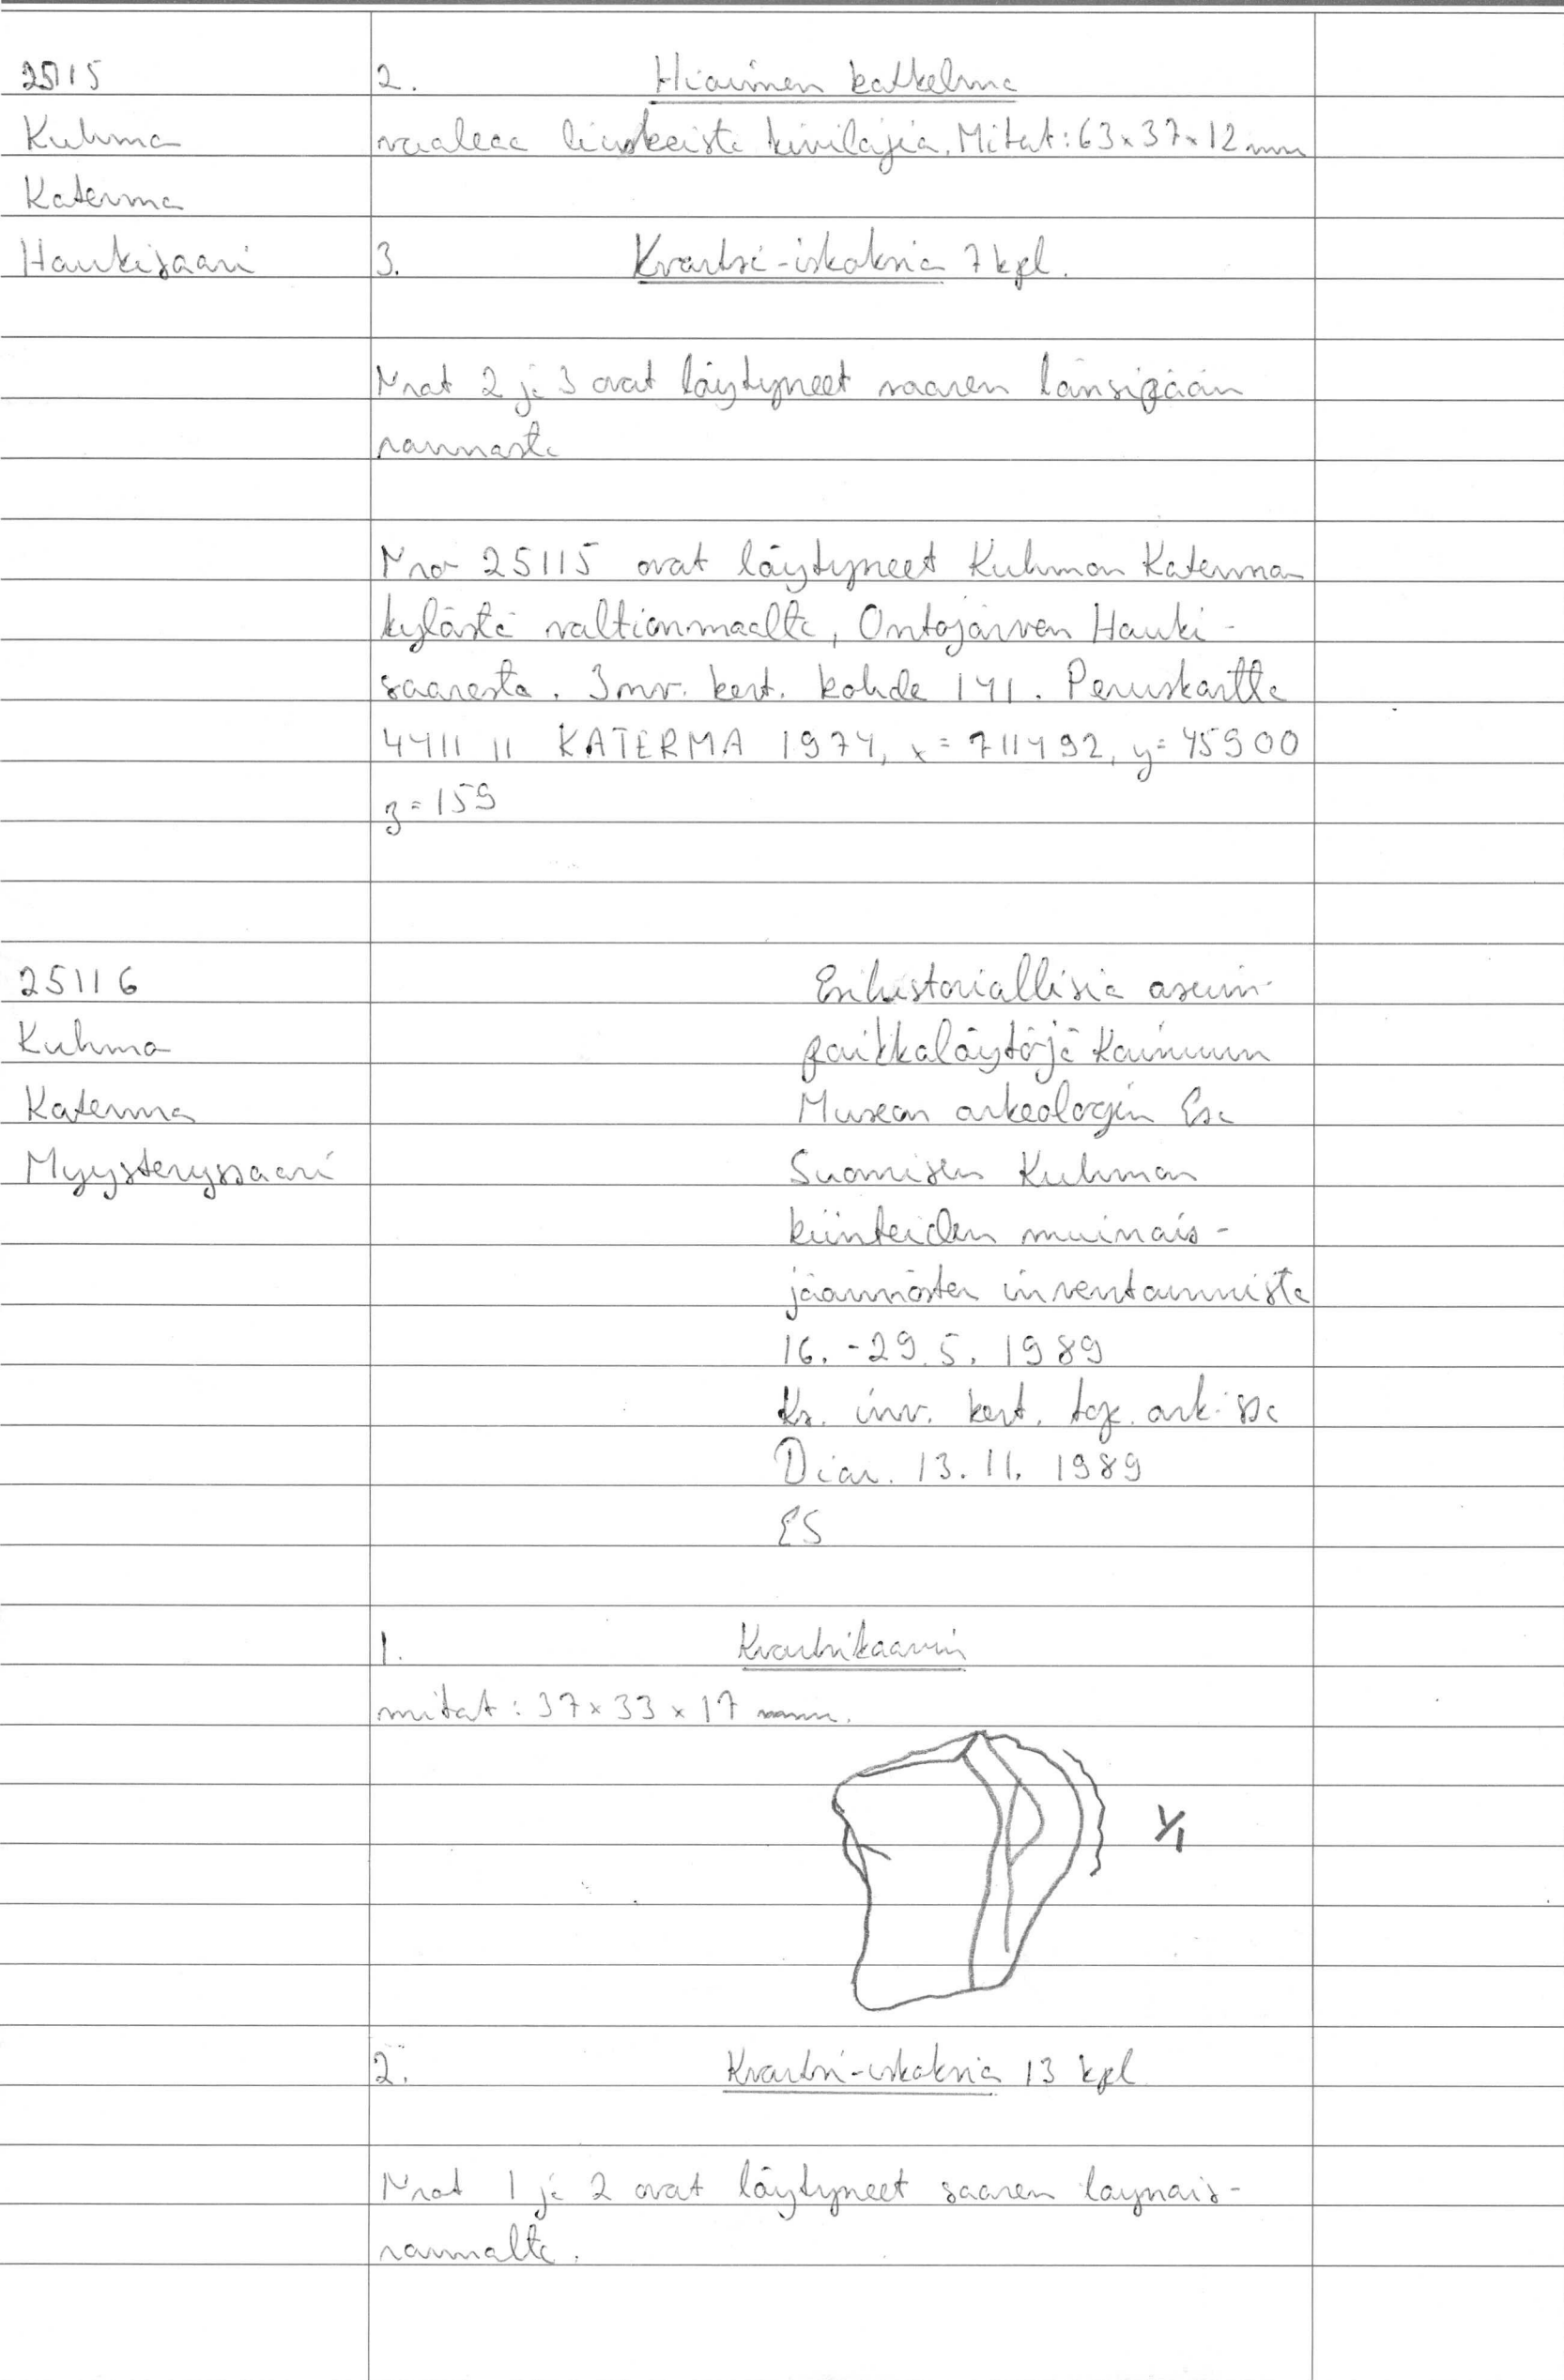 25115
Kuhmo
Katerma
Haukisaari
2. Hioimen katkelma
vaaleaa liuskeista kivilajia. Mitat: 63x37x12 mm
3. Kvartsi-iskoksia 7 kpl.
Nrot 2 ja 3 ovat löytyneet saaren länsipään
rannasta
Nro 25115 ovat löytyneet Kuhmon Katerman
kylästä valtionmaalta, Ontojärven Hauki-
saaresta. Inv. kert. kohde 141. Peruskartta
4411 11 KATERMA 1974, x = 711492, y = 45900
z = 159
25116
Kuhmo
Katerma
Myysteryssaari
Esihistoriallisia asuin-
paikkalöytöjä Kainuun
Museon arkeologin Esa
Suomisen Kuhmon
kiinteiden muinais-
jäännösten inventoinnista
16.-29.5.1989
Ks. inv. kert. top. ark:ssa
Diar. 13.11.1989
ES
1. Kvartsikaavin
mitat: 37x33x17 mm.
1/1
2. Kvartsi-iskoksia 13 kpl
Nrot 1 ja 2 ovat löytyneet saaren
rannalta.